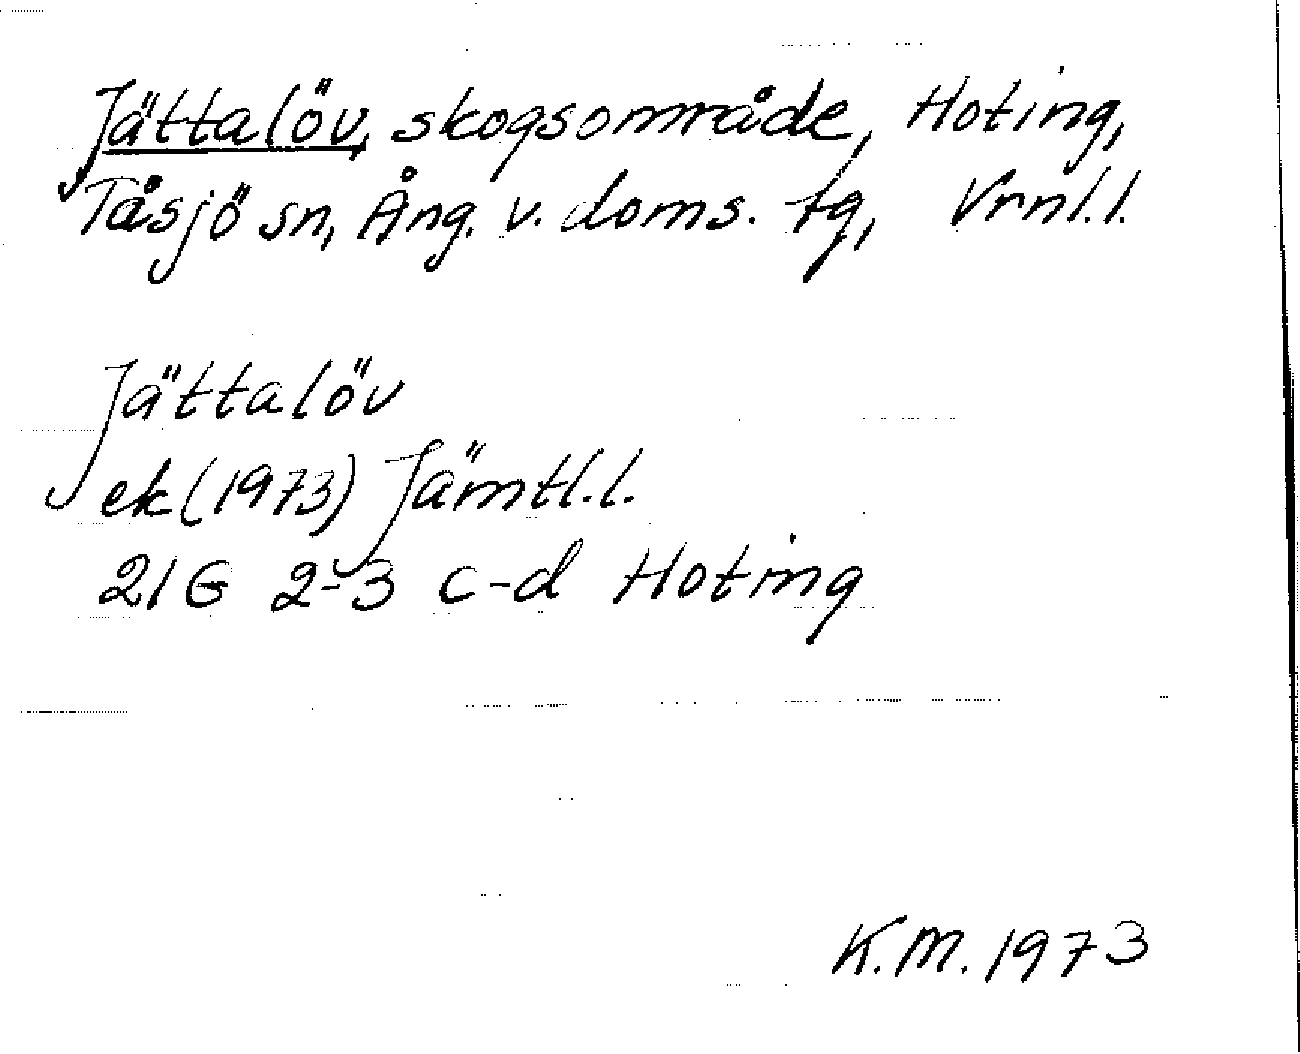 Jättalöv, skogsområde, Hoting,
Tåsjö sn, Ång. v. doms. tg, Vrnl.l.
Jättalöv
ek (1973) Jämtl.l.
21G 2-3 c-d Hoting
K.M. 1973